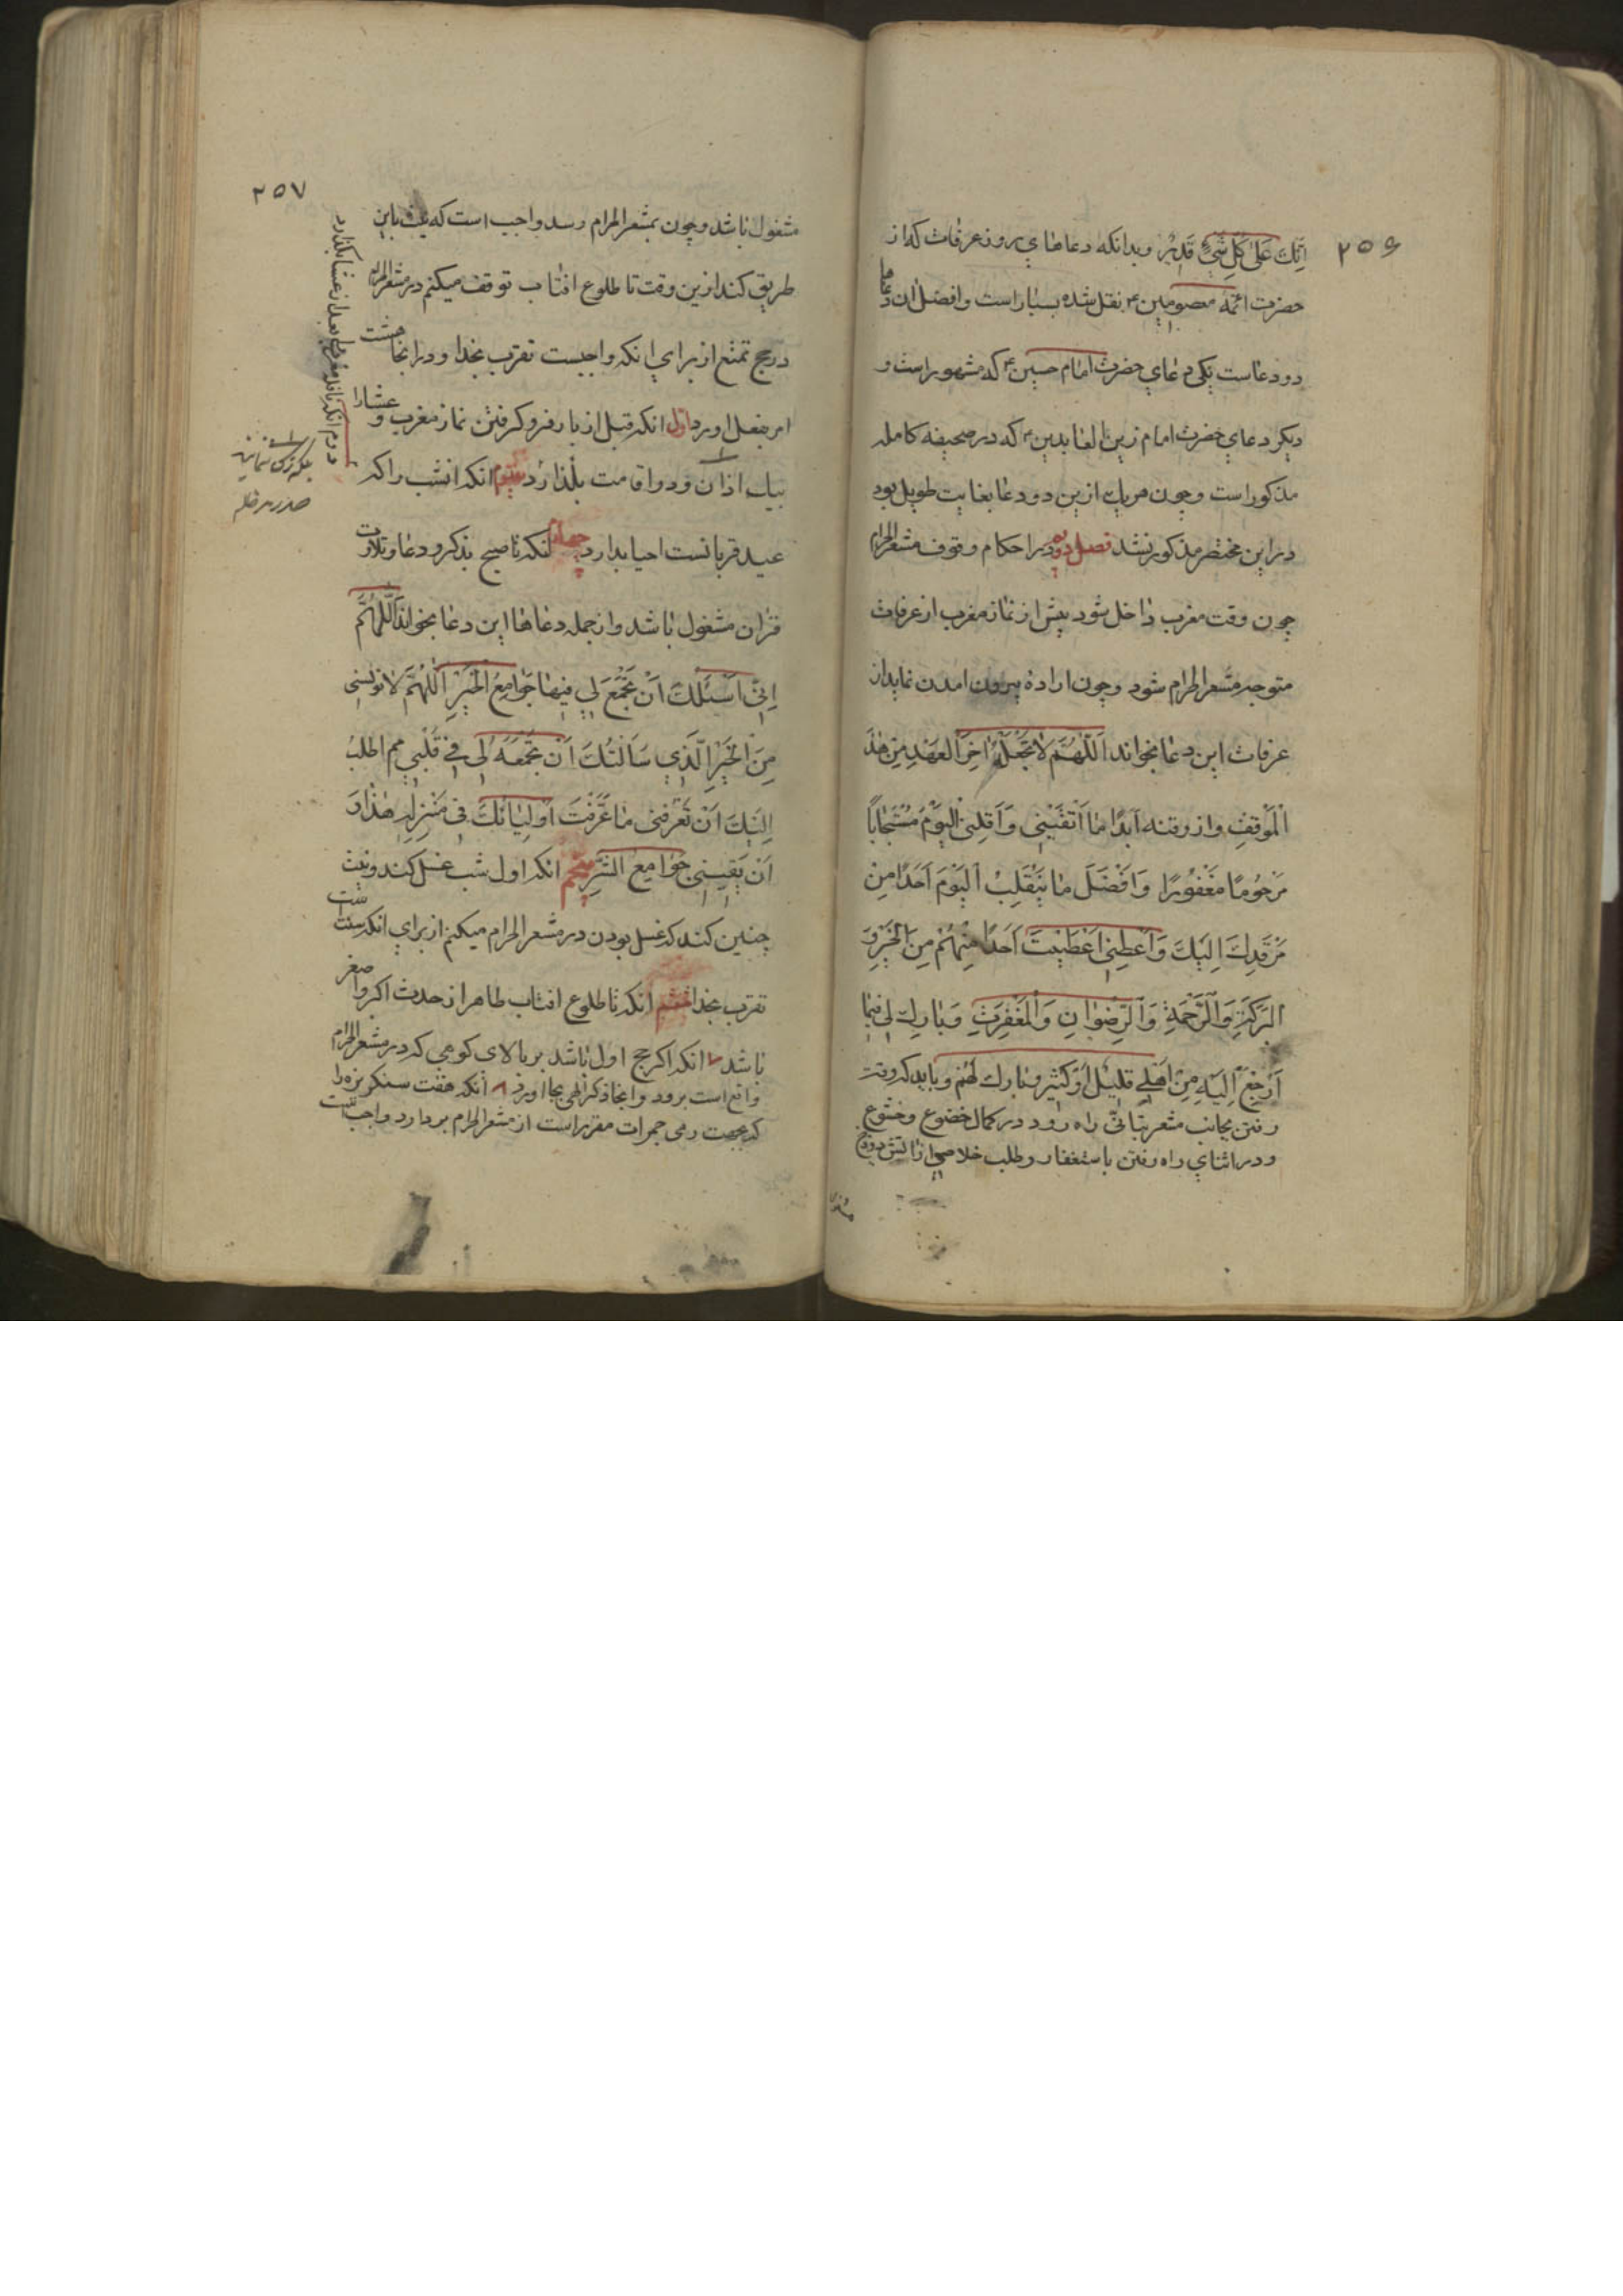 ۲۵۶
اِنَّكَ عَلیٰ كُلِّ شَیْءٍ قَدیرٌ وبدانکه دعاهای روز عرفات که از
حضرت ائمه معصومین ع نقل شده بسیار است وافضل ان دعاها
دو دعاست یکی دعای حضرت امام حسین ع که مشهور است و
دیکر دعای حضرت امام زین العابدین ع که در صحیفه کامله
مذکور است وچون هریك ازین دو دعا بغایت طویل بود
در این مختصر مذکور نشد فصل دوم در احکام وقوف مشعر الحرام
چون وقت مغرب داخل شود پیش از نماز مغرب از عرفات
متوجه مشعر الحرام شود وچون اراده بیرون امدن نماید از
عرفات این دعا بخواند اَللّٰهُمَّ لاٰ تَجْعَلْهُ اٰخِرَ الْعَهْدِ مِنْ هٰذَ
الْمَوْقِفِ وارزقنه اَبَدًا مٰا اَبْقَیْتَنی وَاَقْلِبْنی الْیَوْمَ مُسْتَجٰاباً
مَرْحُومًا مَغْفُورًا وَاَفْضَلَ مٰا یَنْقَلِبُ الْیَوْمَ اَحَدًا مِنْ
اِلَیْكَ وَاَعْطِنی اَعْطَیْتَ اَحَدًا مِنْهُمْ مِنَ الْخَیْرِ وَ
الْبَرَكَةِ وَالرَّحْمَةِ وَالرِّضْوٰانِ وَالْمَغْفِرَتِ وَبٰارِك لی فیمٰا
اَرْجِعُ اِلَیْهِ مِنْ اَهْلی قَلیْل اَوْ كَثیر وبٰارك لَهُمْ وباید که وقت
رفتن بجانب مشعر بتانّی راه رود در کمال خضوع وخشوع
ودر اثنای راه رفتن باستغفار وطلب خلاصی از اتش دوزخ
مشغول
۲۵۷
مشغول باشد وچون بمشعر الحرام رسد واجب است که نیت باین
طریق کند ازین وقت تا طلوع افتاب توقف میکنم در مشعر الحرام
در حج تمتع از برای انکه واجبست تقرب بخدا ودر انجا هشت
امر بفعل اورد اول انکه قبل از بار فرو کرفتن نماز مغرب و عشا را
بیك اذان ودو اقامت بگذارد سیم انکه انشب را که
عید قربانست احیا بدارد چهارم انکه تا صبح بذکر ودعا وتلاوت
قران مشغول باشد واز جمله دعاها این دعا بخواند اَللّٰهُمَّ
اِنّی اَسْئَلُكَ اَنْ تَجْمَعَ لی فیهٰا جَوٰامِعَ الْخَیْرِ اَللّٰهُمَّ لاٰ تؤیسنی
مِنَ الْخَیْرِ الَّذی سَاَلْتُكَ اَنْ تَجْمَعَهُ لی فی قَلْبی اطلبُ
اِلَیْكَ اَنْ تُعَرِّفَنی مٰا عَرَّفْتَ اَوْلِیٰائَكَ فی مَنْزِلی هٰذٰا وَ
اَنْ تَقِیَنی جَوٰامِعَ الشَّرِّ پنجم انکه اول شب غسل کند ونیت
چنین کند که غسل بودن در مشعر الحرام میکنم از برای انکه سنت
تقرب بخدا ششم انکه تا طلوع افتاب طاهر از حدث اکبر واصغر
باشد ۷ انکه اکر حج اول باشد بر بالای کوهی که در مشعر الحرام
واقع است برود وانجا ذکر الهی بجا اورد ۸ انکه هفت سنکریزه را
که بجهت رمی جمرات مقرر است از مشعر الحرام بردارد واجب نیست
دوم انکه نافله مغرب را بعد از عشا بکذارد